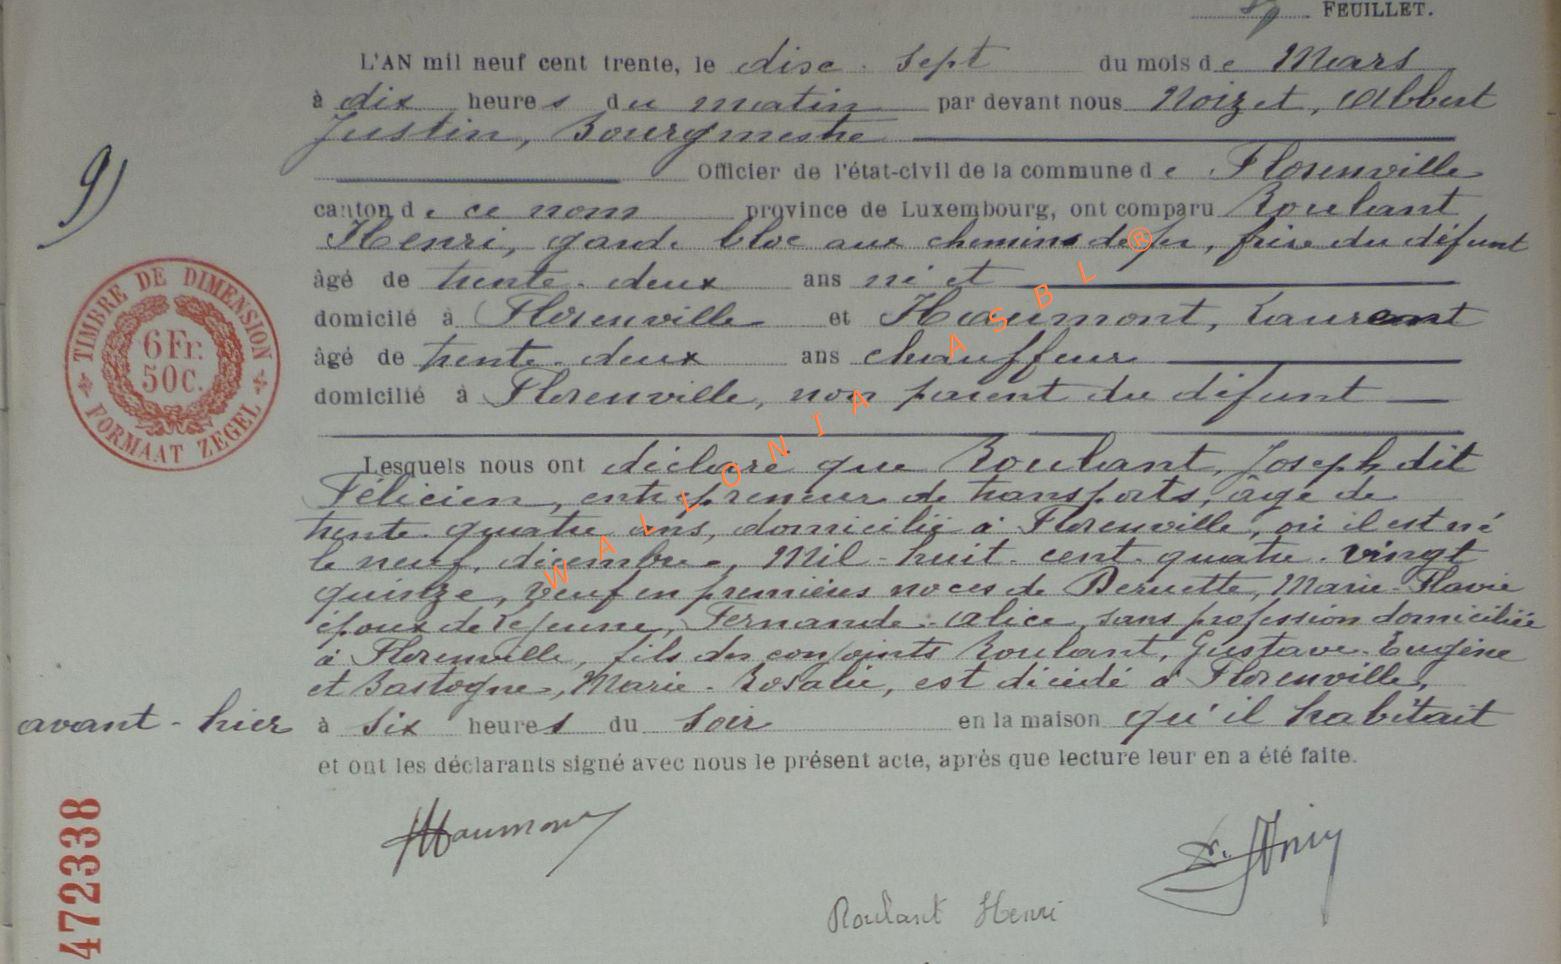 FEUILLET.
L'AN mil neuf cent trente, le dix-sept du mois de Mars
à dix heures du matin par devant nous Noizet, Albert
Justin, Bourgmestre
Officier de l'état-civil de la commune de Florenville
canton de ce nom province de Luxembourg, ont comparu Roulant
Henri, garde bloc aux chemins de fer, frère du défunt
âgé de trente-deux ans ni et
domicilé à Florenville et Haumont, Laurent
âgé de trente-deux ans chauffeur
domicilié à Florenville, non parent du défunt
Lesquels nous ont déclaré que Roulant, Joseph dit
Félicien, entrepreneur de transports, âgé de
trente-quatre ans, domicilié à Florenville, où il est né
le neuf décembre, Mil-huit-cent-quatre-vingt
quinze, veuf en premières noces de Marie-Flavie
époux de Lejeune, Fernande-Alice, sans profession domiciliée
à Florenville, fils des conjoints Roulant, Gustave-Eugène
et Bastogne, Marie-Rosalie, est décédé à Florenville,
avant-hier à six heures du soir en la maison qu'il habitait
et ont les déclarants signé avec nous le présent acte, après que lecture leur en a été faite.
9)
TIMBRE DE DIMENSION
6 Fr.
50 C.
FORMAAT ZEGEL
472338
Haumont
Roulant Henri
WALLONIA ASBL ®